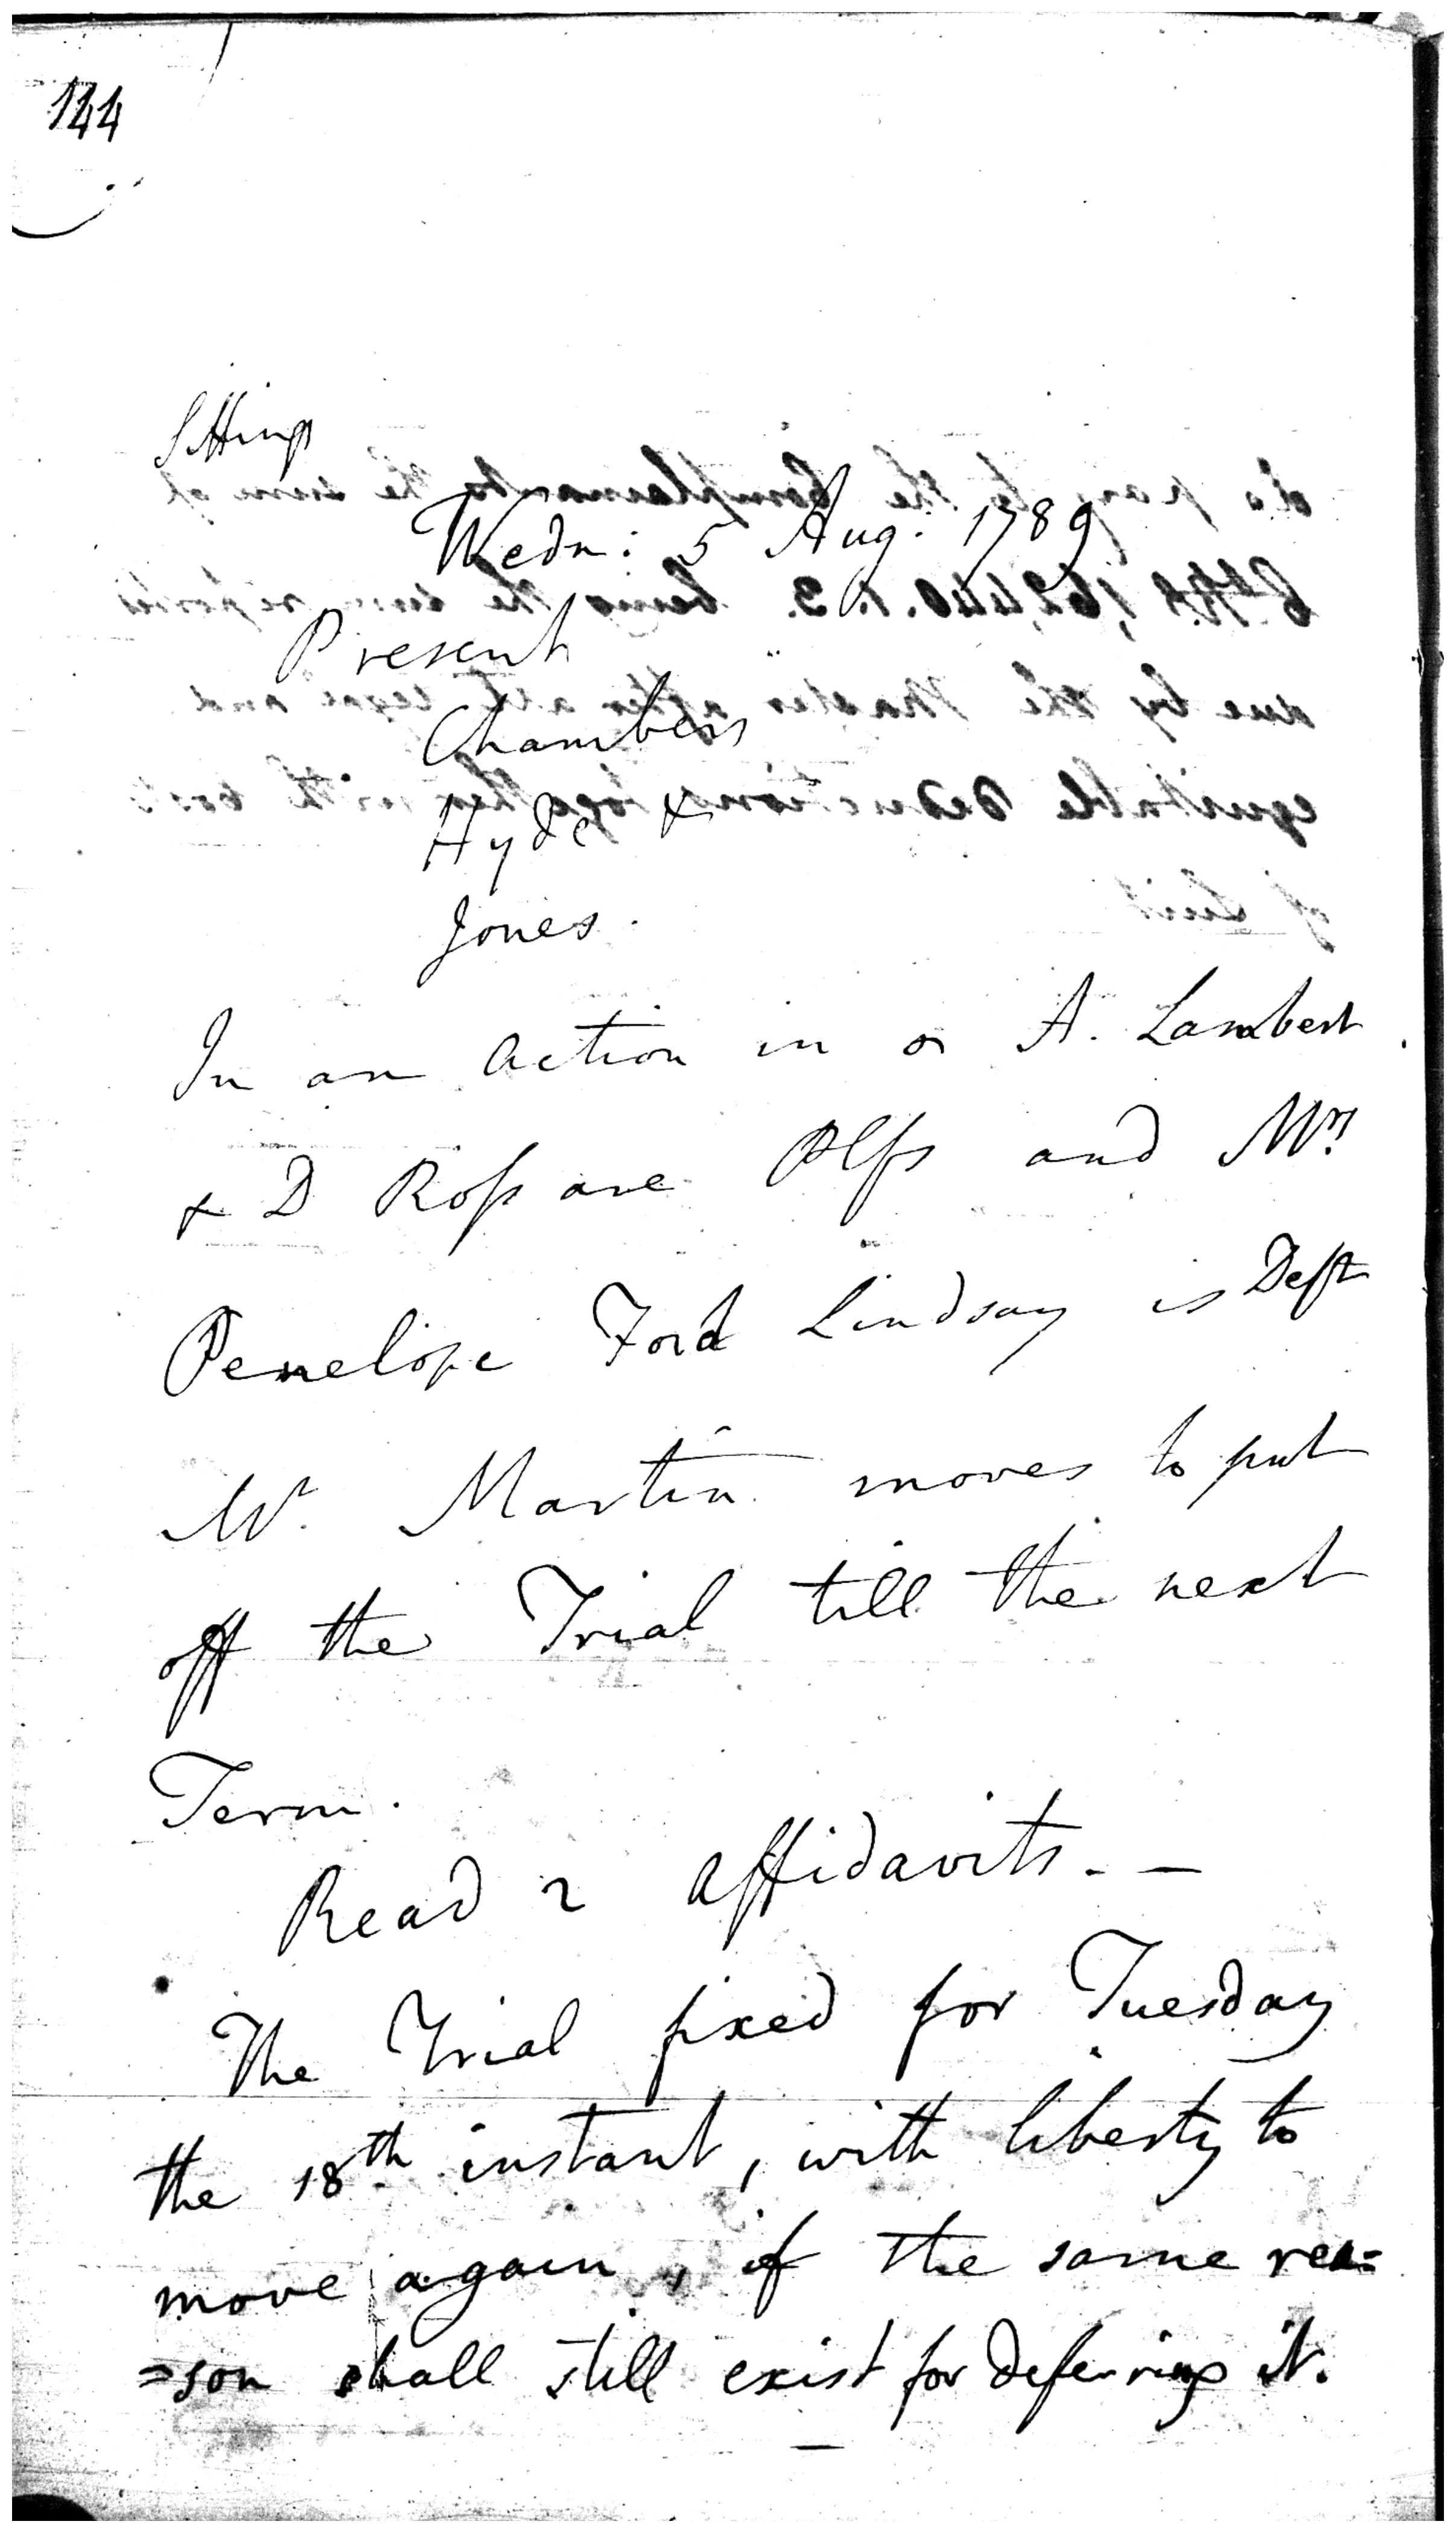 144
Sittings
Wedn: 5 Aug: 1789
Present
Chambers
Hyde &
Jones.
In an action in A. Lambert
& D Ross are Plfs and Mrs
Penelope Ford Lindsay is Deft
Mr. Martin moves to put
off the Trial till the next
Term.
Read 2 affidavits. —
The Trial fixed for Tuesday
the 18th instant, with liberty to
move again, if the same rea=
=son shall still exist for deferring it.